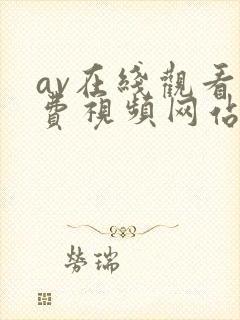 av在綫觀看
費視頻网佔
勞瑞